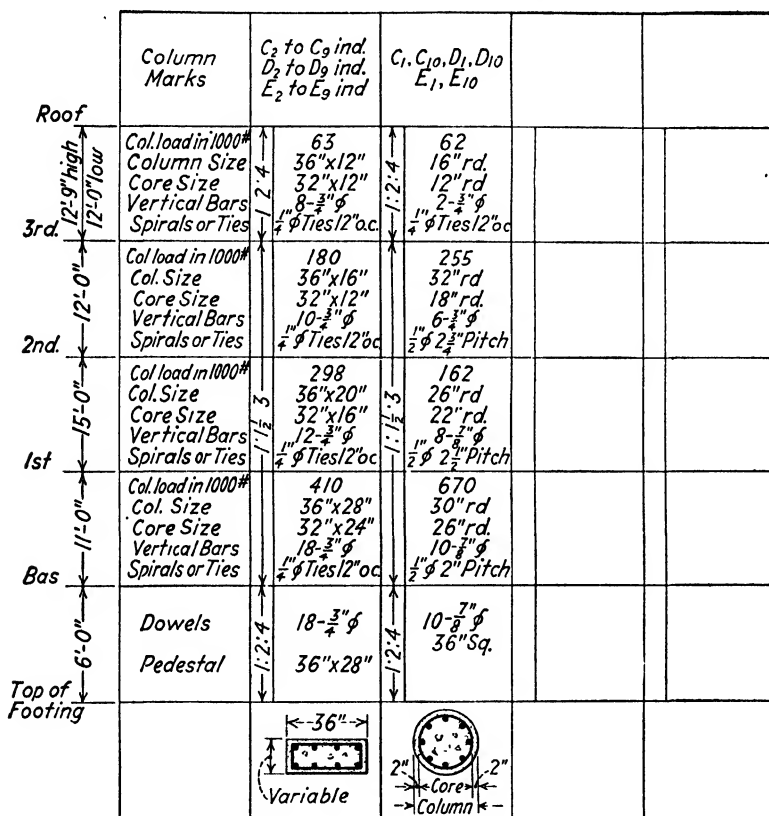 Column Marks
C2 to C9 ind.
D2 to D9 ind.
E2 to E9 ind
C1, C10, D1, D10
E1, E10
Roof
12'-9" high
12'-0" low
Col. load in 1000#
Column Size
Core Size
Vertical Bars
Spirals or Ties
1:2:4
63
36"x12"
32"x12"
8-3/4"ϕ
1/4"ϕ Ties 12" o.c.
1:2:4
62
16" rd.
12" rd
2-3/4"ϕ
1/4"ϕ Ties 12" oc
3rd.
12'-0"
Col load in 1000#
Col. Size
Core Size
Vertical Bars
Spirals or Ties
1:1 1/2:3
180
36"x16"
32"x12"
10-3/4"ϕ
1/4"ϕ Ties 12" oc
1:1 1/2:3
255
32" rd
18" rd.
6-3/4"ϕ
1/2"ϕ 2 3/4" Pitch
2nd.
15'-0"
Col load in 1000#
Col. Size
Core Size
Vertical Bars
Spirals or Ties
298
36"x20"
32"x16"
12-3/4"ϕ
1/4"ϕ Ties 12" oc
162
26" rd
22" rd.
8-7/8"ϕ
1/2"ϕ 2 1/2" Pitch
1st
11'-0"
Col. load in 1000#
Col. Size
Core Size
Vertical Bars
Spirals or Ties
410
36"x28"
32"x24"
18-3/4"ϕ
1/4"ϕ Ties 12" oc.
670
30" rd
26" rd.
10-7/8"ϕ
1/2"ϕ 2" Pitch
Bas
6'-0"
Dowels
Pedestal
1:2:4
18-3/4"ϕ
36"x28"
1:2:4
10-7/8"ϕ
36" Sq.
Top of
Footing
36"
Variable
2"
2"
Core
Column